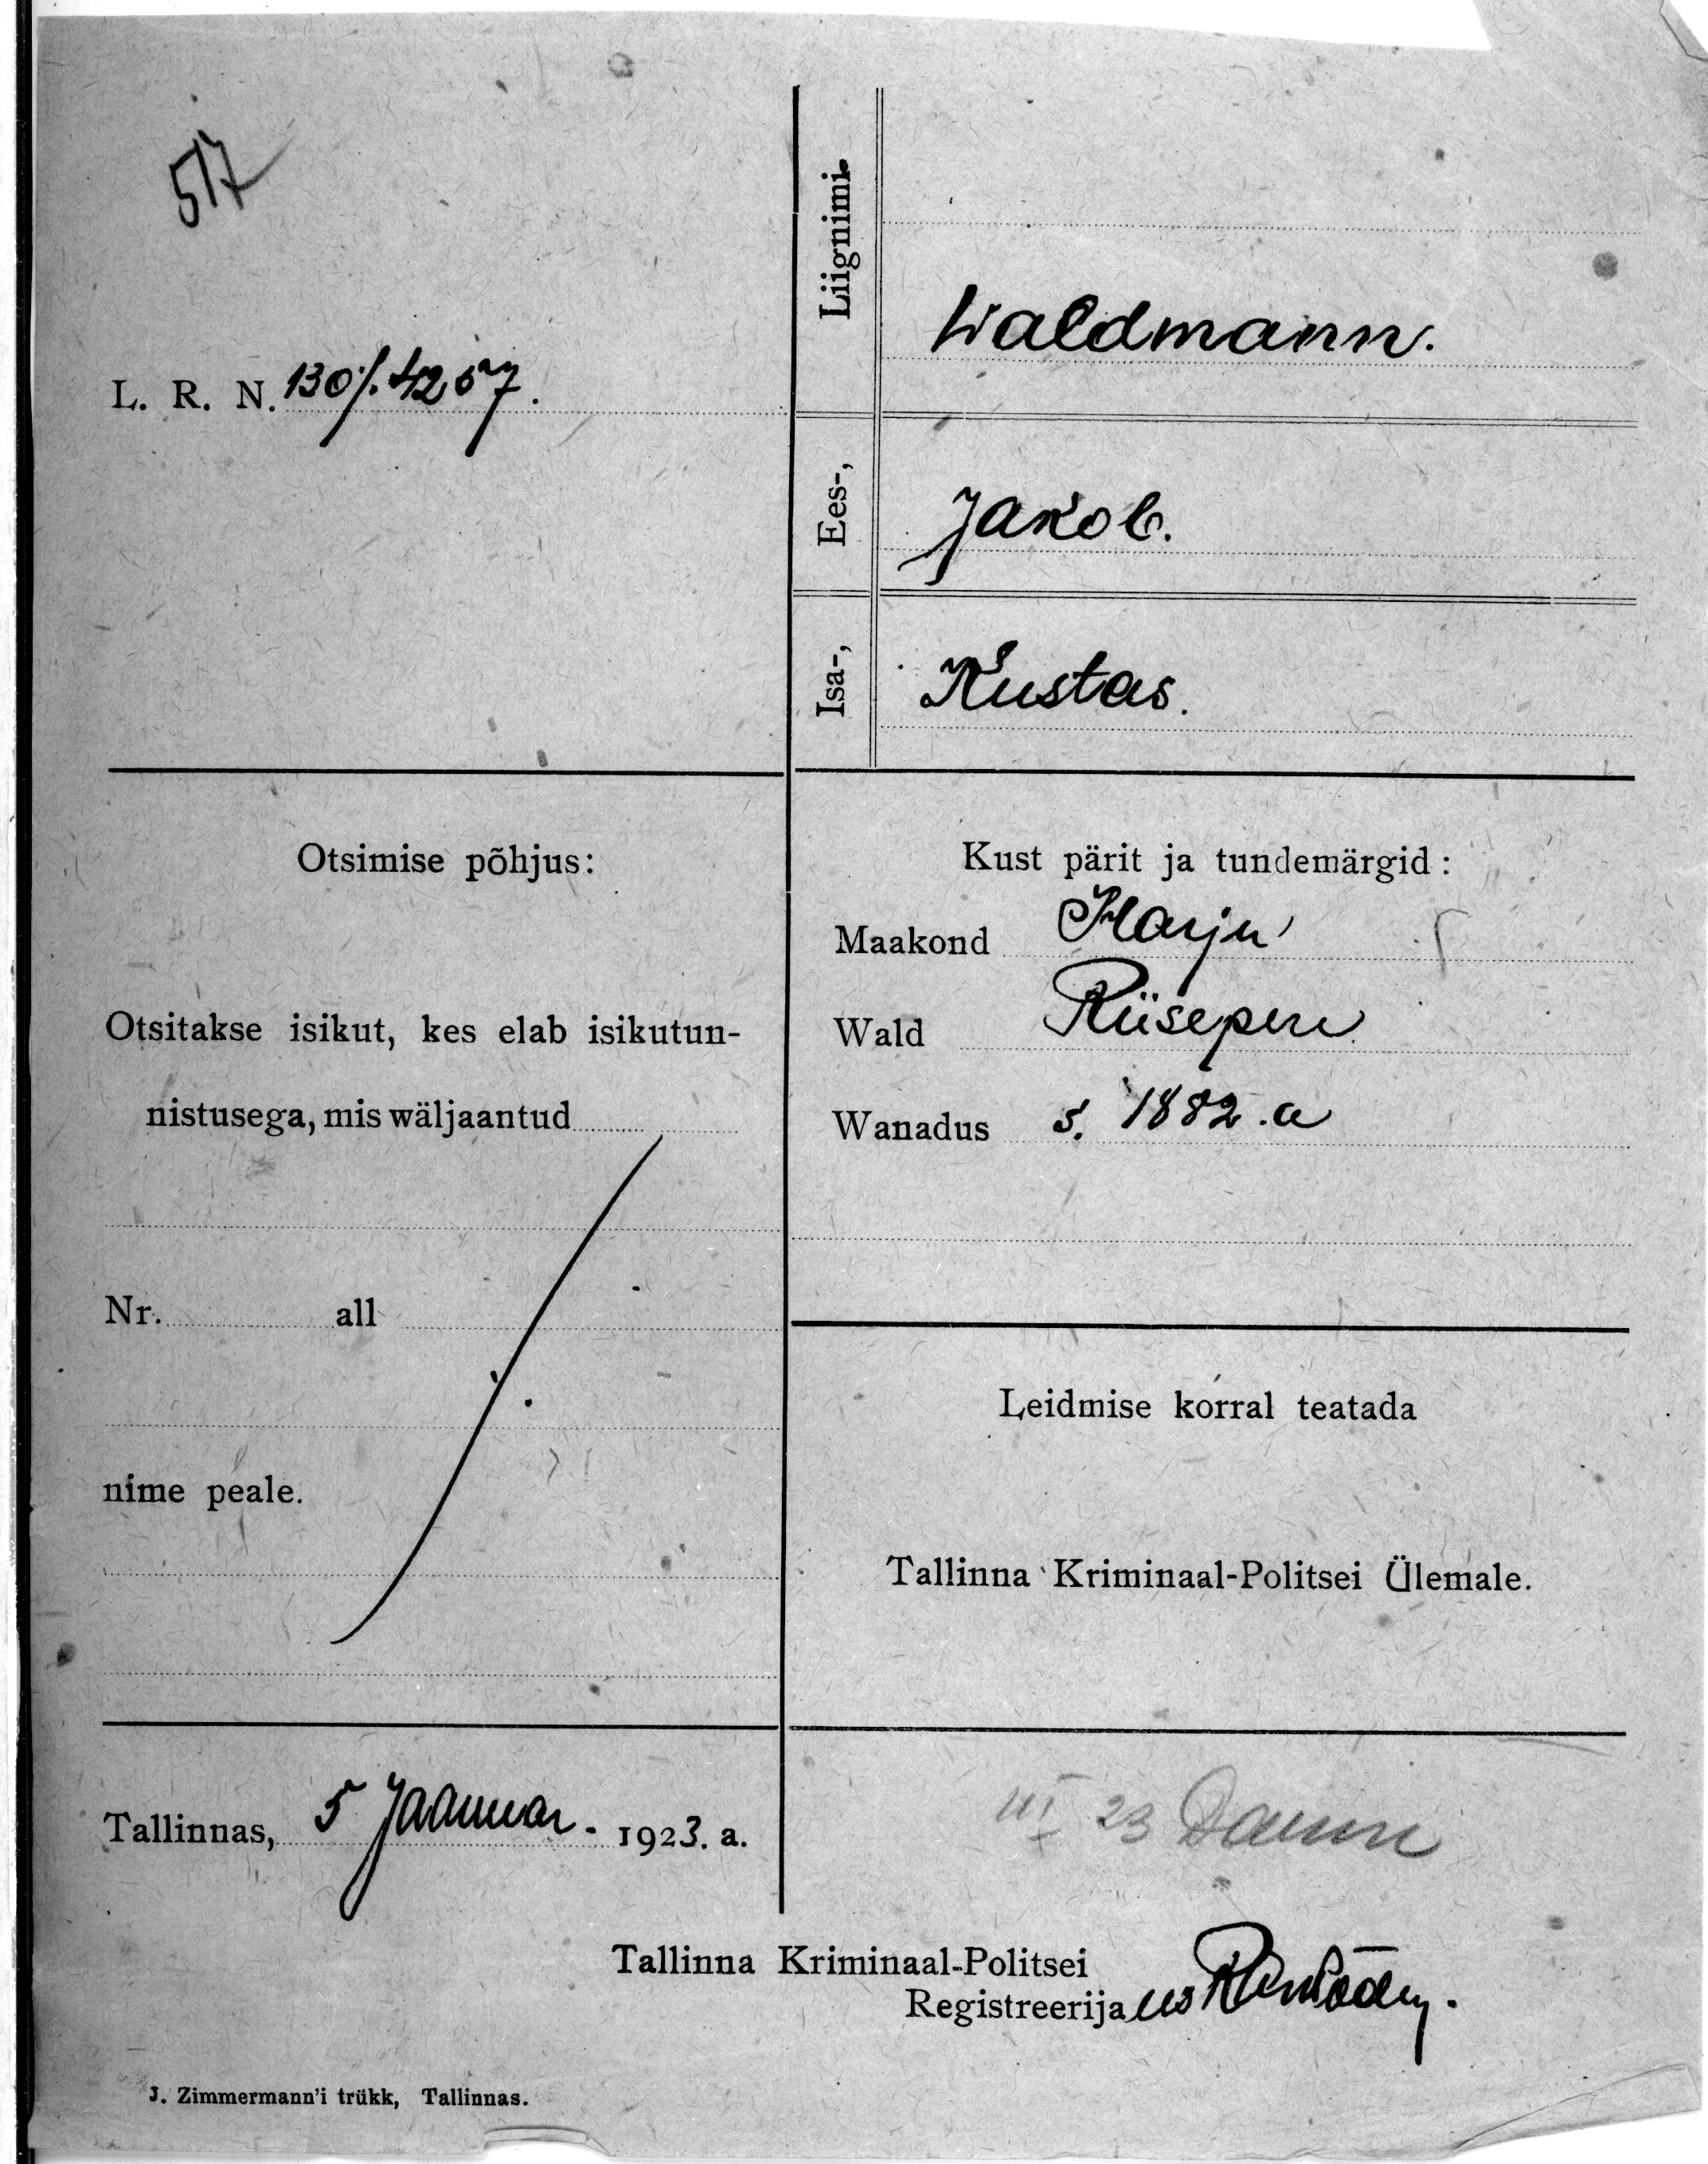 517
L. R. N. 130/. 4257.
Liignimi. Waldmann.
Ees-, Jakob.
Isa-, Kustas.
Otsimise põhjus:
Otsitakse isikut, kes elab isikutun-
nistusega, mis wäljaantud
Nr. all
nime peale.
Kust pärit ja tundemärgid:
Maakond Harju
Wald Riisepere
Wanadus s. 1882. a
Leidmise korral teatada
Tallinna Kriminaal-Politsei Ülemale.
Tallinnas, 5 Jaanuar. 1923. a.
23
Tallinna Kriminaal-Politsei
Registreerija
J. Zimmermann'i trükk, Tallinnas.